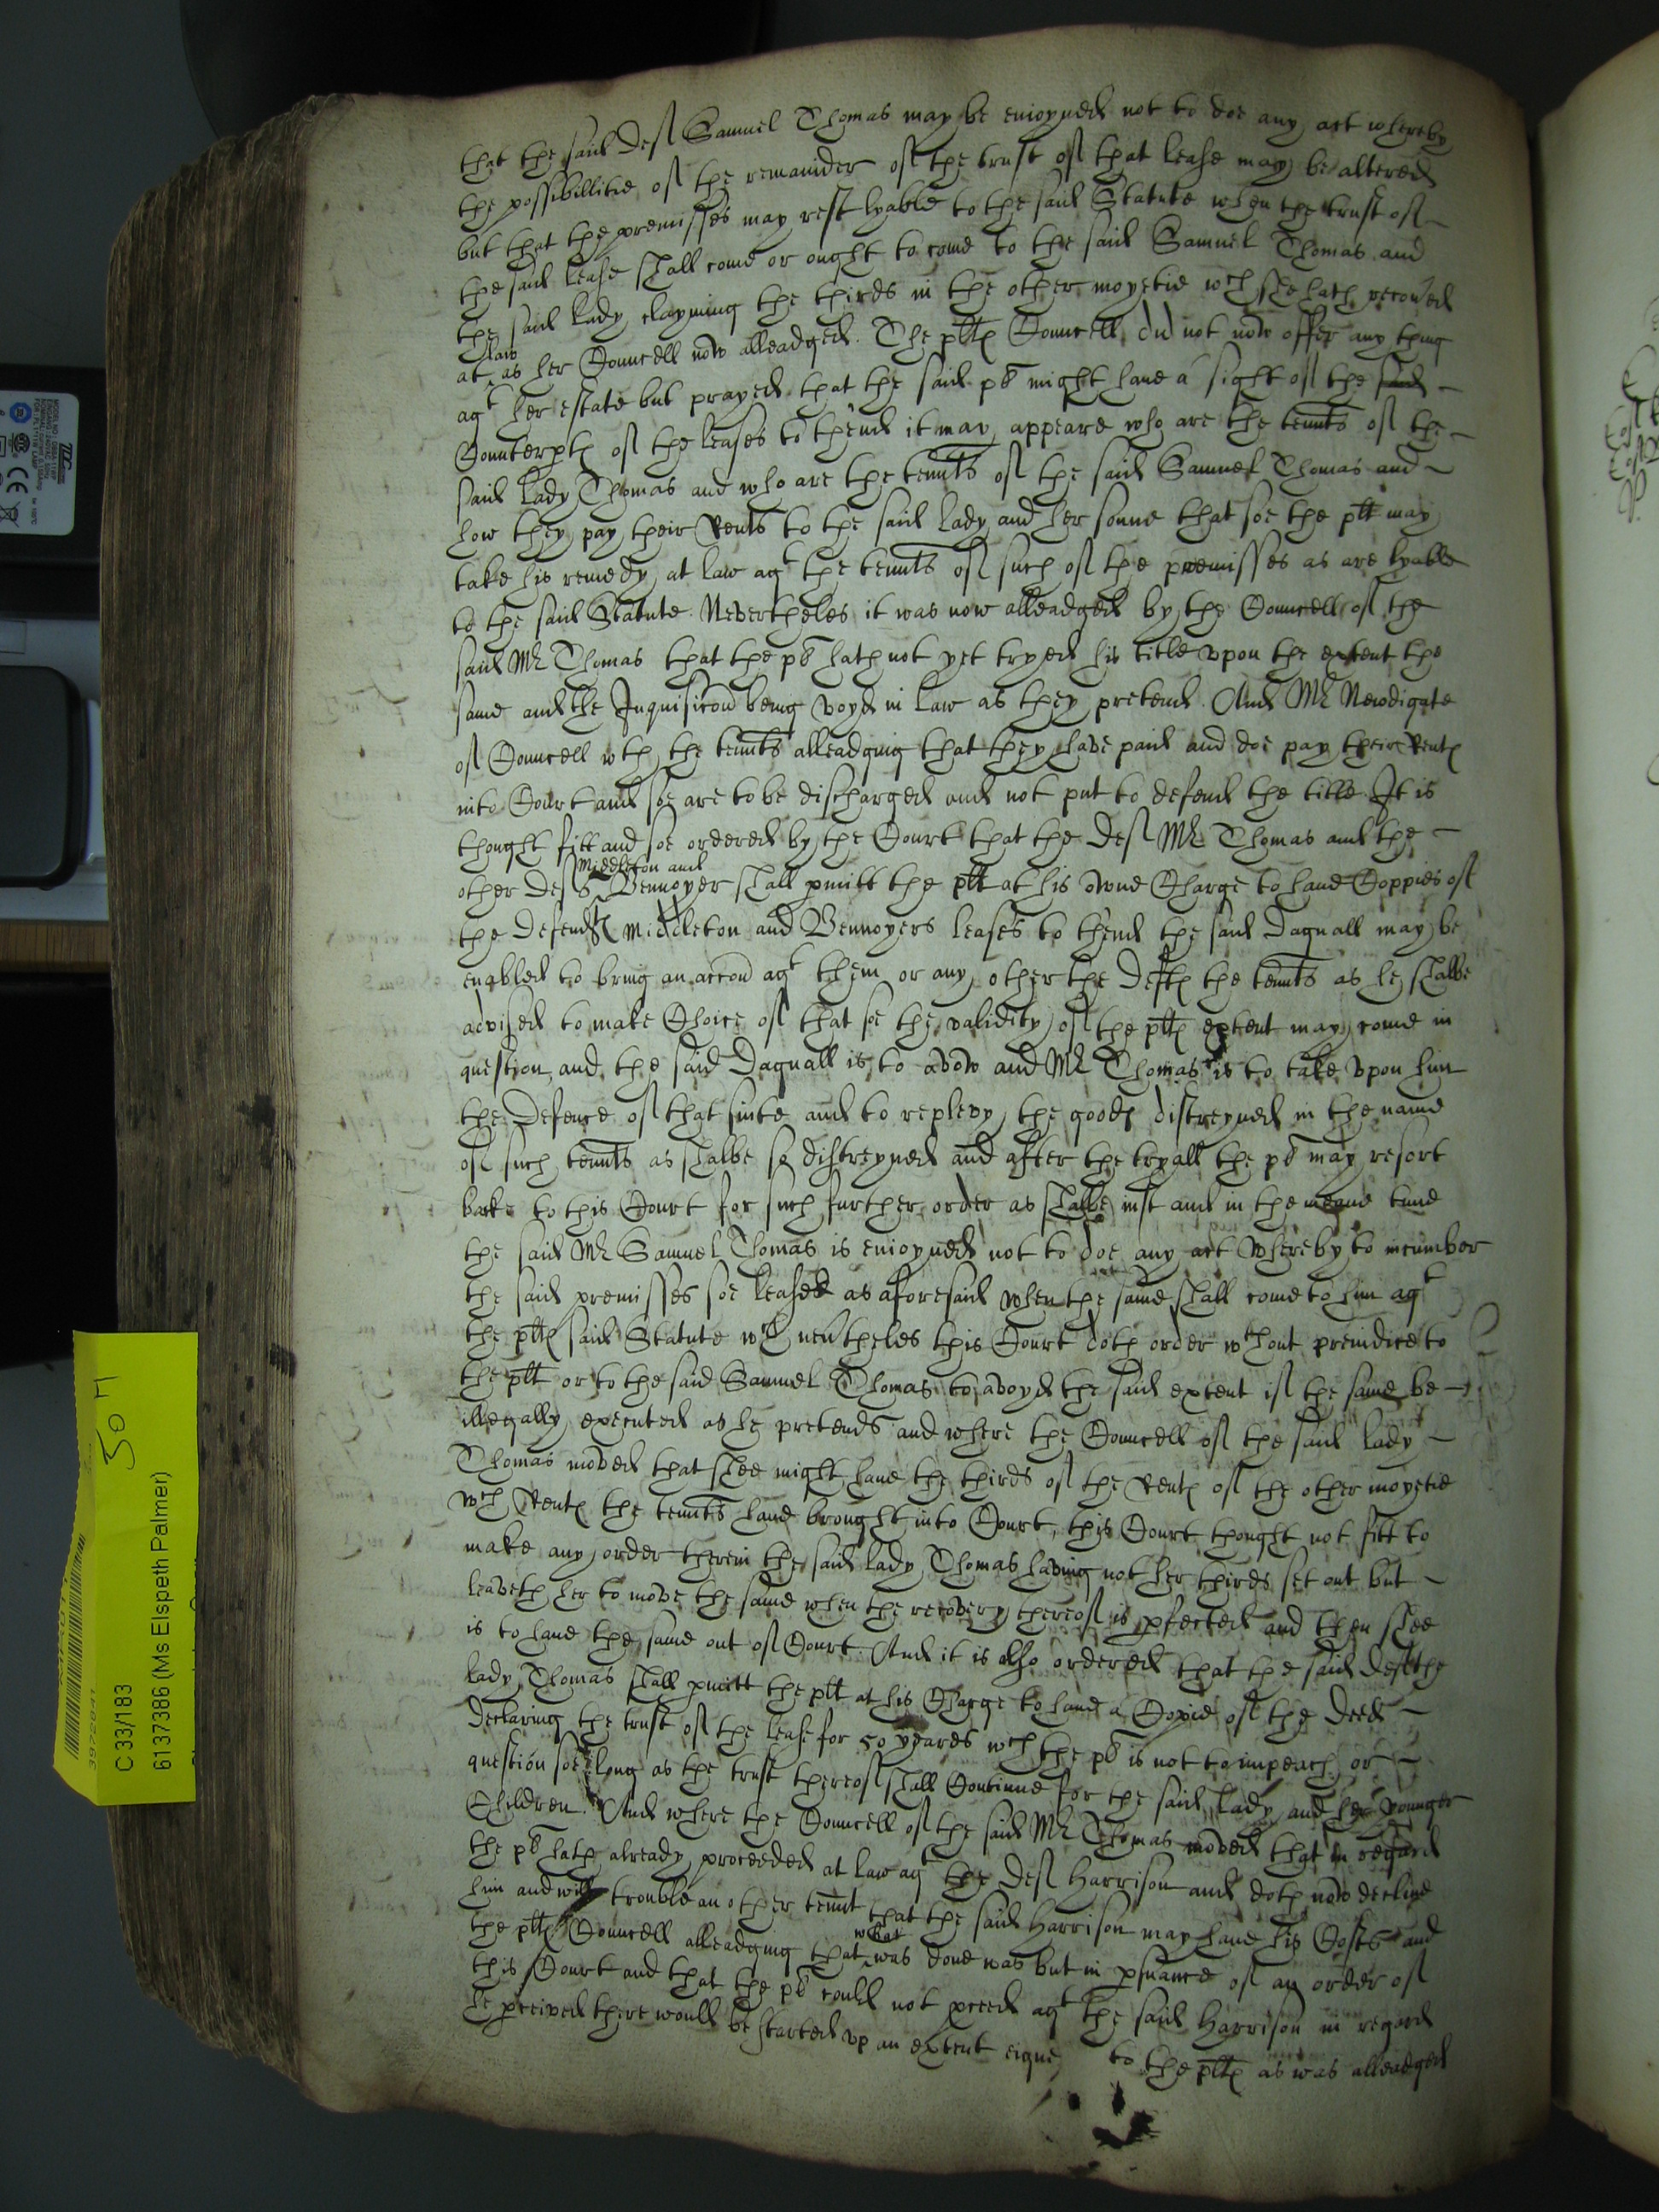 that the said deft Samuel Thomas may be enioyned not to doe any act whereby
the possibillitie of the remainder of the trust of that lease may be altered
but that the premisses may rest lyable to the said Statute when the trust of
the said lease shall come or ought to come to the said Samuel Thomas and
the said Lady clayming the thirds in the other moyetie wch she hath recoued
law
at as her Councell now alleadged. The plts Councell did not now offer any thing
agt her estate but prayed that the said pl might haue a sight of the said
Counterpts of the leases to thend it may appeare who are the tennts of the
said Lady Thomas and who are the tennts of the said Samuel Thomas and
how they pay their Rents to the said lady and her sonne that soe the plt may
take his remedy at law agt the tennts of such of the premisses as are lyable
to the said Statute. Neverthelés it was now alleadged by the Councell of the
said Mr Thomas that the pl hath not yet tryed his title vpon the extent the
same and the Inquisicon being voyd in law as they pretend. And Mr Newdigate
of Councell wth the tennts alleadging that they have paid and doe pay their Rents
into Court and soe are to be discharged and not put to defend the title. It is
thought fitt and soe ordered by the Court that the deft Mr Thomas and the
Middleton and
other defts Vennoyer shall pmitt the plt at his owne Charge to haue Coppies of
the defendts Middleton and Vennoyers leases to thend the said Dagnall may be
enabled to bring an accon agt them or any other the defts the tennts as he shalbe
advised to make Choice of that soe the validity of the plts extent may come in
question and the said Dagnall is to avow and Mr Thomas is to take vpon him
the Defence of that suite and to replevy the goods distreyned in the name
of such tennts as shalbe so distreyned and after the tryall the pl may resort
backe to this Court for such further order as shalbe iust and in the meane time
the said Mr Samuel Thomas is enioyned not to doe any act whereby to incumber
the said premisses soe leased as aforesaid when the same shall come to him agt
the plts said Statute wch neutheles this Court doth order wthout preiudice to
the plt or to the said Samuel Thomas to avoyd the said extent if the same be
illegally executed as he pretends and where the Councell of the said lady
Thomas moved that shee might haue the thirds of the Rents of the other moyetie
wch Rents the tennts haue brought into Court, this Court thought not fitt to
make any order therein the said lady Thomas having not her thirds set out but
leaveth her to move the same when the recovery thereof is pfected and then shee
is to haue the same out of Court. And it is also ordered that the said deft the
lady Thomas shall pmitt the plt at his Charge to haue a Copie of the deed
declaring the trust of the lease for 50 yeares wch the pl is not to impeach or
question soe long as the trust thereof shall Continue for the said Lady and her younger
Children. And where the Councell of the said Mr Thomas moved that in regard
the pl hath already proceeded at law agt the deft Harrison and doth now decline
him and will trouble an other tennt that the said Harrison may haue his Costs and
the plts Councell alleadging that what was done was but in psuance of an order of
this Court and that the pl could not pceed agt the said Harrison in regard
he pceived there would be started vp an extent eigne to the plts as was alleadged
C 33/183
6137386 (Ms Elspeth Palmer)
50 H